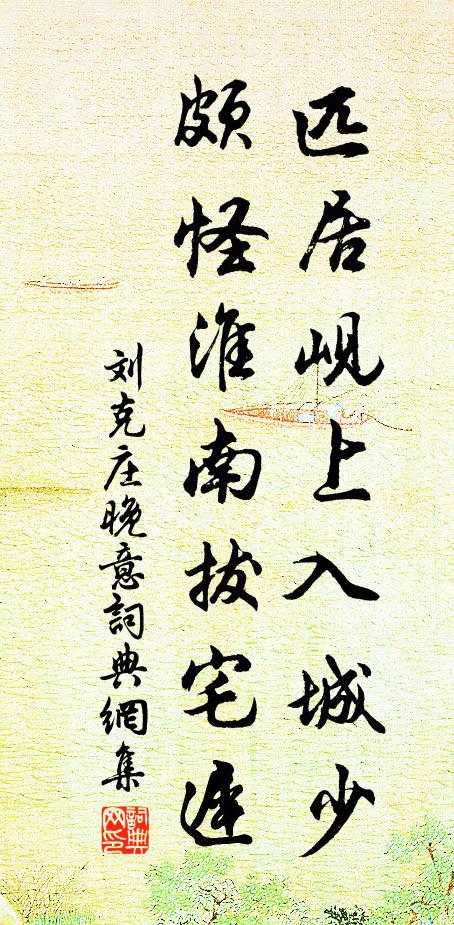 匹居岘上入城少
颇怪淮南拔宅迟
刘克庄晚意詞典網集
詞典网印